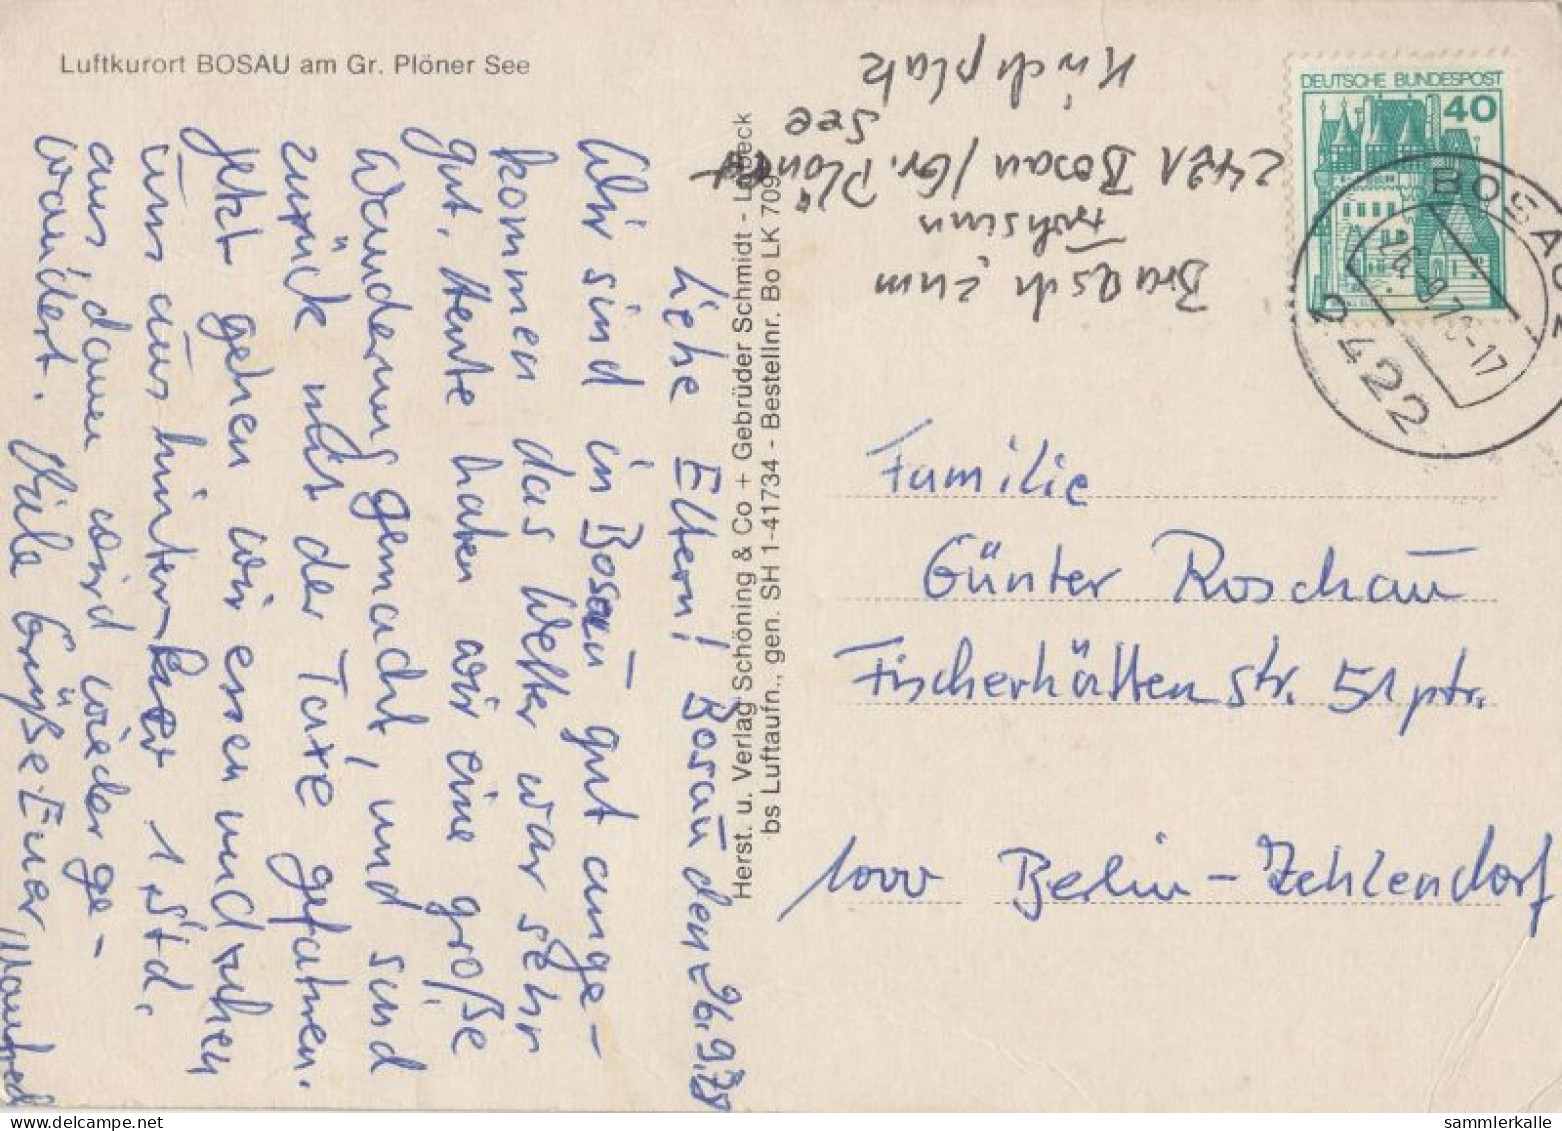 Luftkurort BOSAU am Gr. Plöner See
Bosau den 26.9.78
Liebe Eltern!
Wir sind in Bosau gut ange-
kommen das Wetter war sehr
gut. Heute haben wir eine große
Wanderung gemacht, und sind
zurück mit der Taxe gefahren.
Jetzt gehen wir essen und ruhen
uns aus hinterher 1 Std.
aus dann wird wieder ge-
wandert. Viele Grüße Euer Manfred
Herst. u. Verlag Schöning & Co + Gebrüder Schmidt - Lübeck
bs Luftaufn., gen. SH 1-41734 - Bestellnr. Bo LK 709
zum
Frohsinn
2421 Bosau/Gr. Plöner
See
Kirchplatz
DEUTSCHE BUNDESPOST
40
BOSAU
2422
26.-9.78-17
Familie
Günter Roschau
Fischerhütten str. 51 ptr.
1000 Berlin-Zehlendorf
sammlerkalle